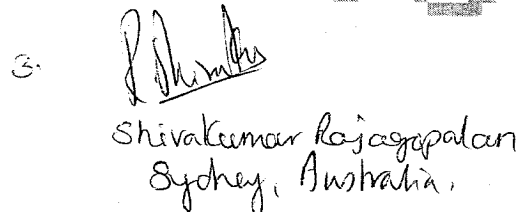 3.
Shivakumar Rajagopalan
Sydney, Australia.